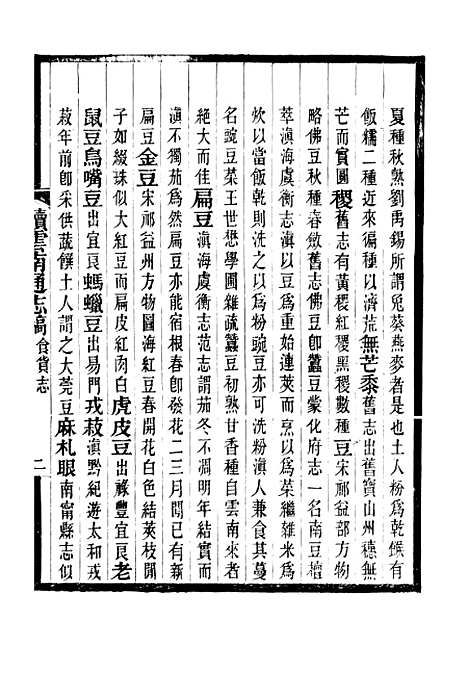 夏種秋熟劉禹錫所謂兔葵燕麥者是也土人粉爲乾餱有
飯糯二種近來徧種以濟荒無芒黍舊志出舊寶山州穗無
芒而實圓稷舊志有黃稷紅稷黑稷數種豆宋祁益部方物
略佛豆秋種春斂舊志佛豆卽蠶豆蒙化府志一名南豆檀
萃滇海虞衡志滇以豆爲重始連莢而烹以爲菜繼雜米爲
炊以當飯乾則洗之以爲粉豌豆亦可洗粉滇人兼食其蔓
名豌豆菜王世懋學圃雜疏蠶豆初熟甘香種自雲南來者
絕大而佳扁豆滇海虞衡志范志謂茄冬不凋明年結實而
滇不獨茄爲然扁豆亦能宿根春卽發花二三月間已有新
扁豆金豆宋祁益州方物圖海紅豆春開花白色結莢枝閒
子如綴珠似大紅豆而扁皮紅肉白虎皮豆出祿豐宜良老
鼠豆鳥嘴豆出宜良螞蠟豆出易門戎菽滇黔紀遊太和戎
菽年前卽采供蔬饌土人謂之大莞豆麻札眼南甯縣志似
續雲南通志稿 食貨志 二